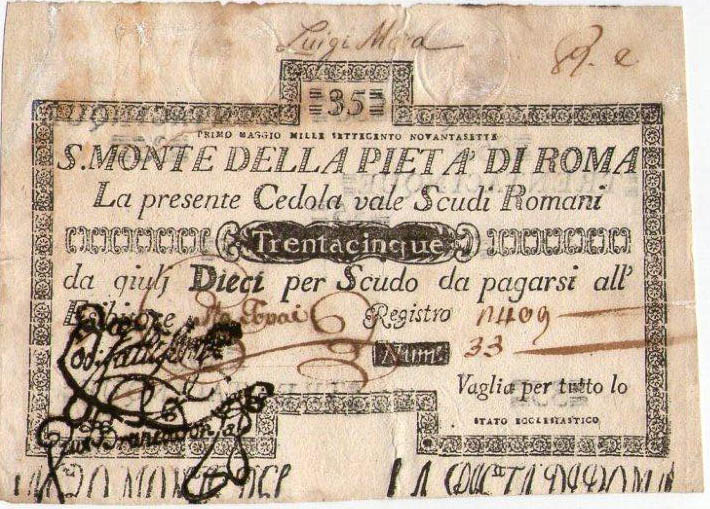 Luigi Mora
35
PRIMO MAGGIO MILLE SETTECENTO NOVANTASETTE
S. MONTE DELLA PIETA' DI ROMA
La presente Cedola vale Scudi Romani
Trentacinque
da giulj Dieci per Scudo da pagarsi all'
Registro 1409
Num. 33
Vaglia per tutto lo
STATO ECCLESIASTICO